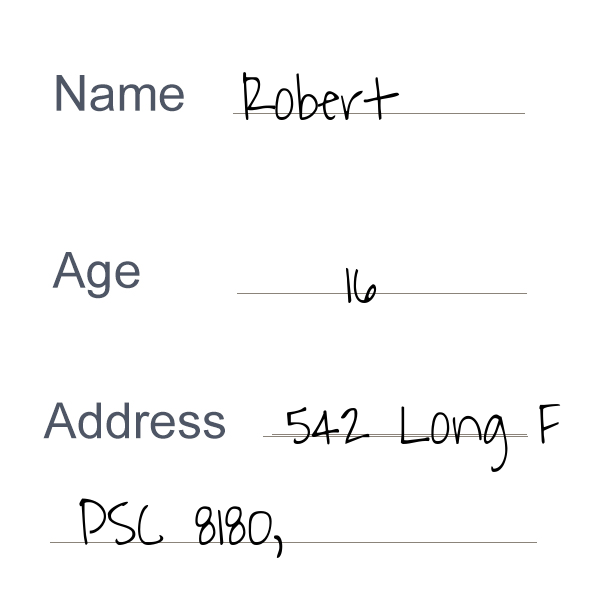 Name Robert
Age 16
Address 542 Long F
PSC 8180,